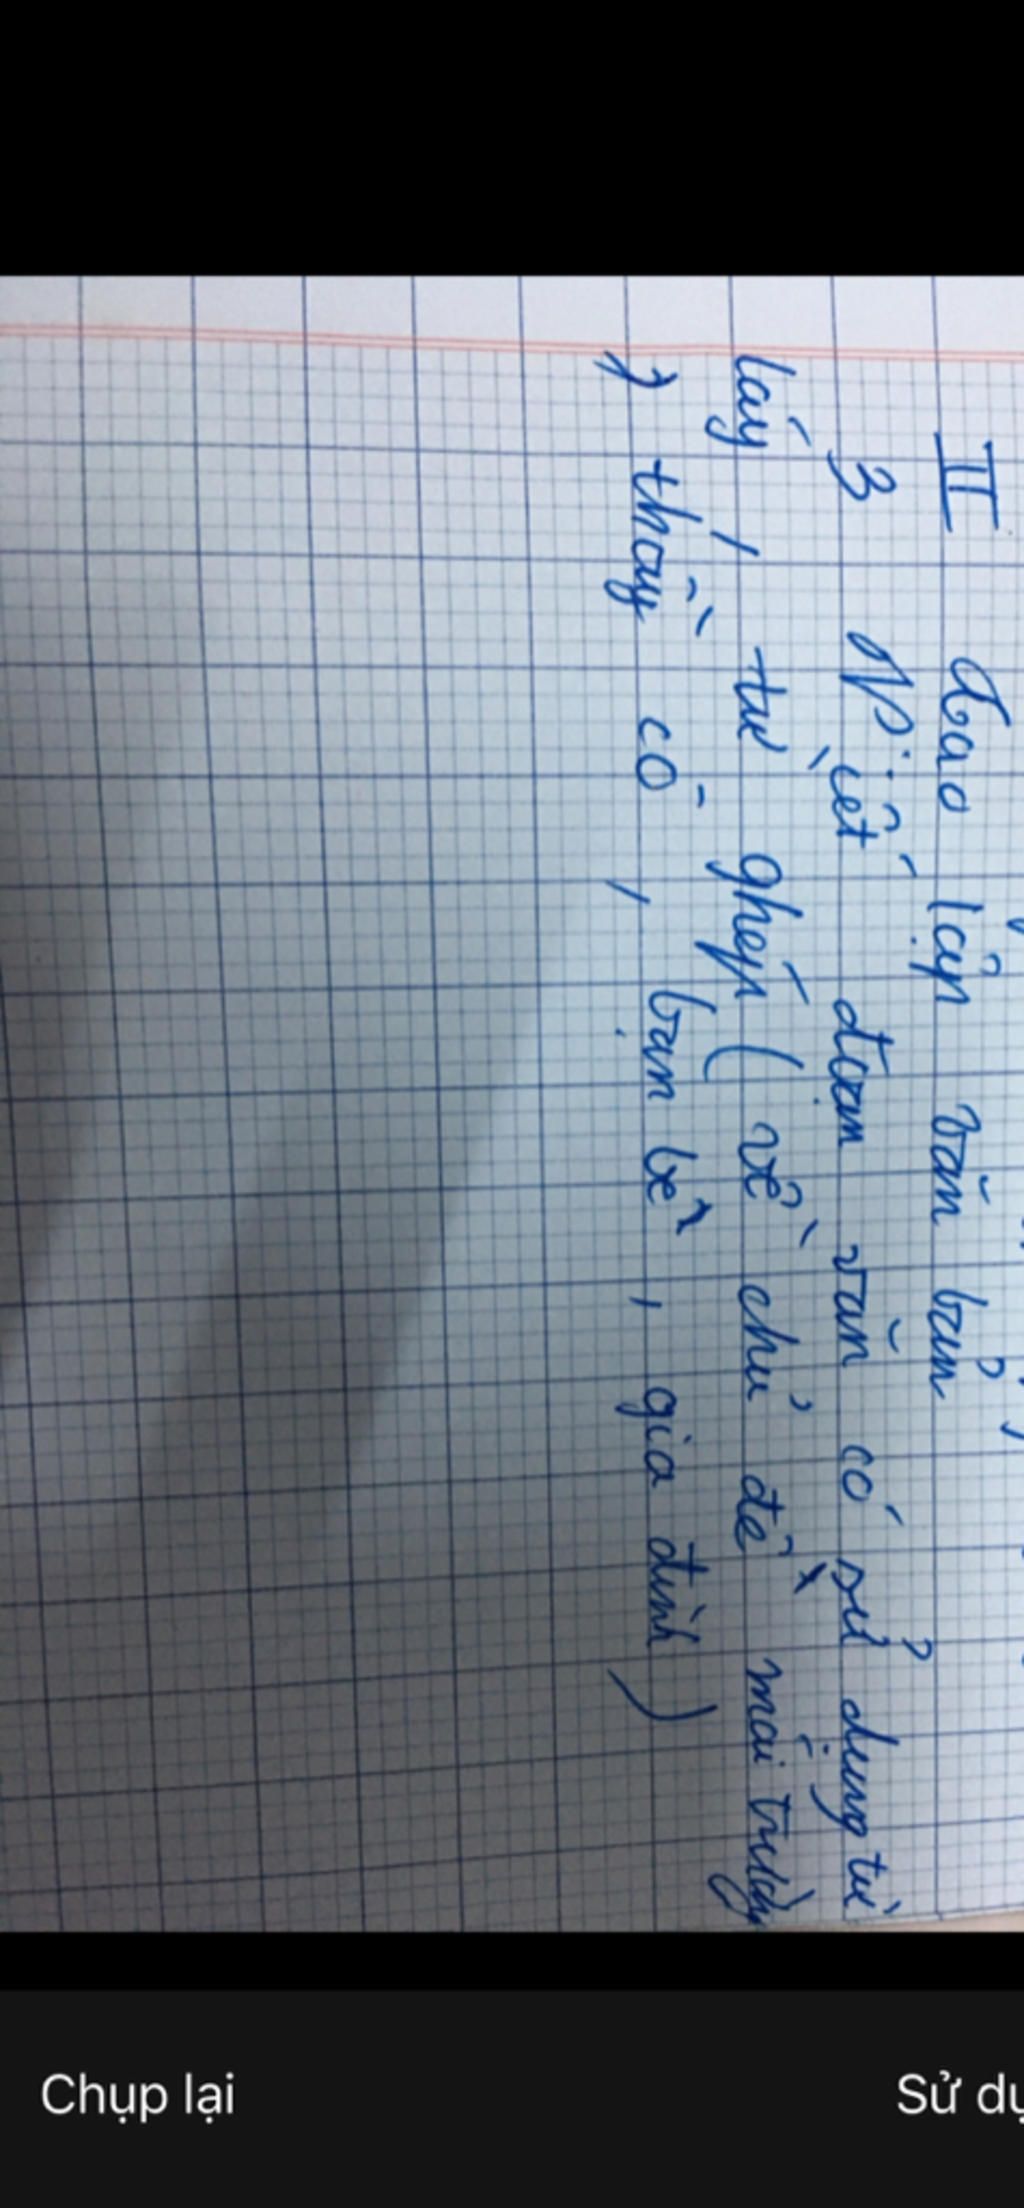 II Tạo lập văn bản
3 Viết đoạn văn có sử dụng từ
láy, từ ghép (về chủ đề mái trường
, thầy cô, bạn bè, gia đình)
Chụp lại
Sử dụ